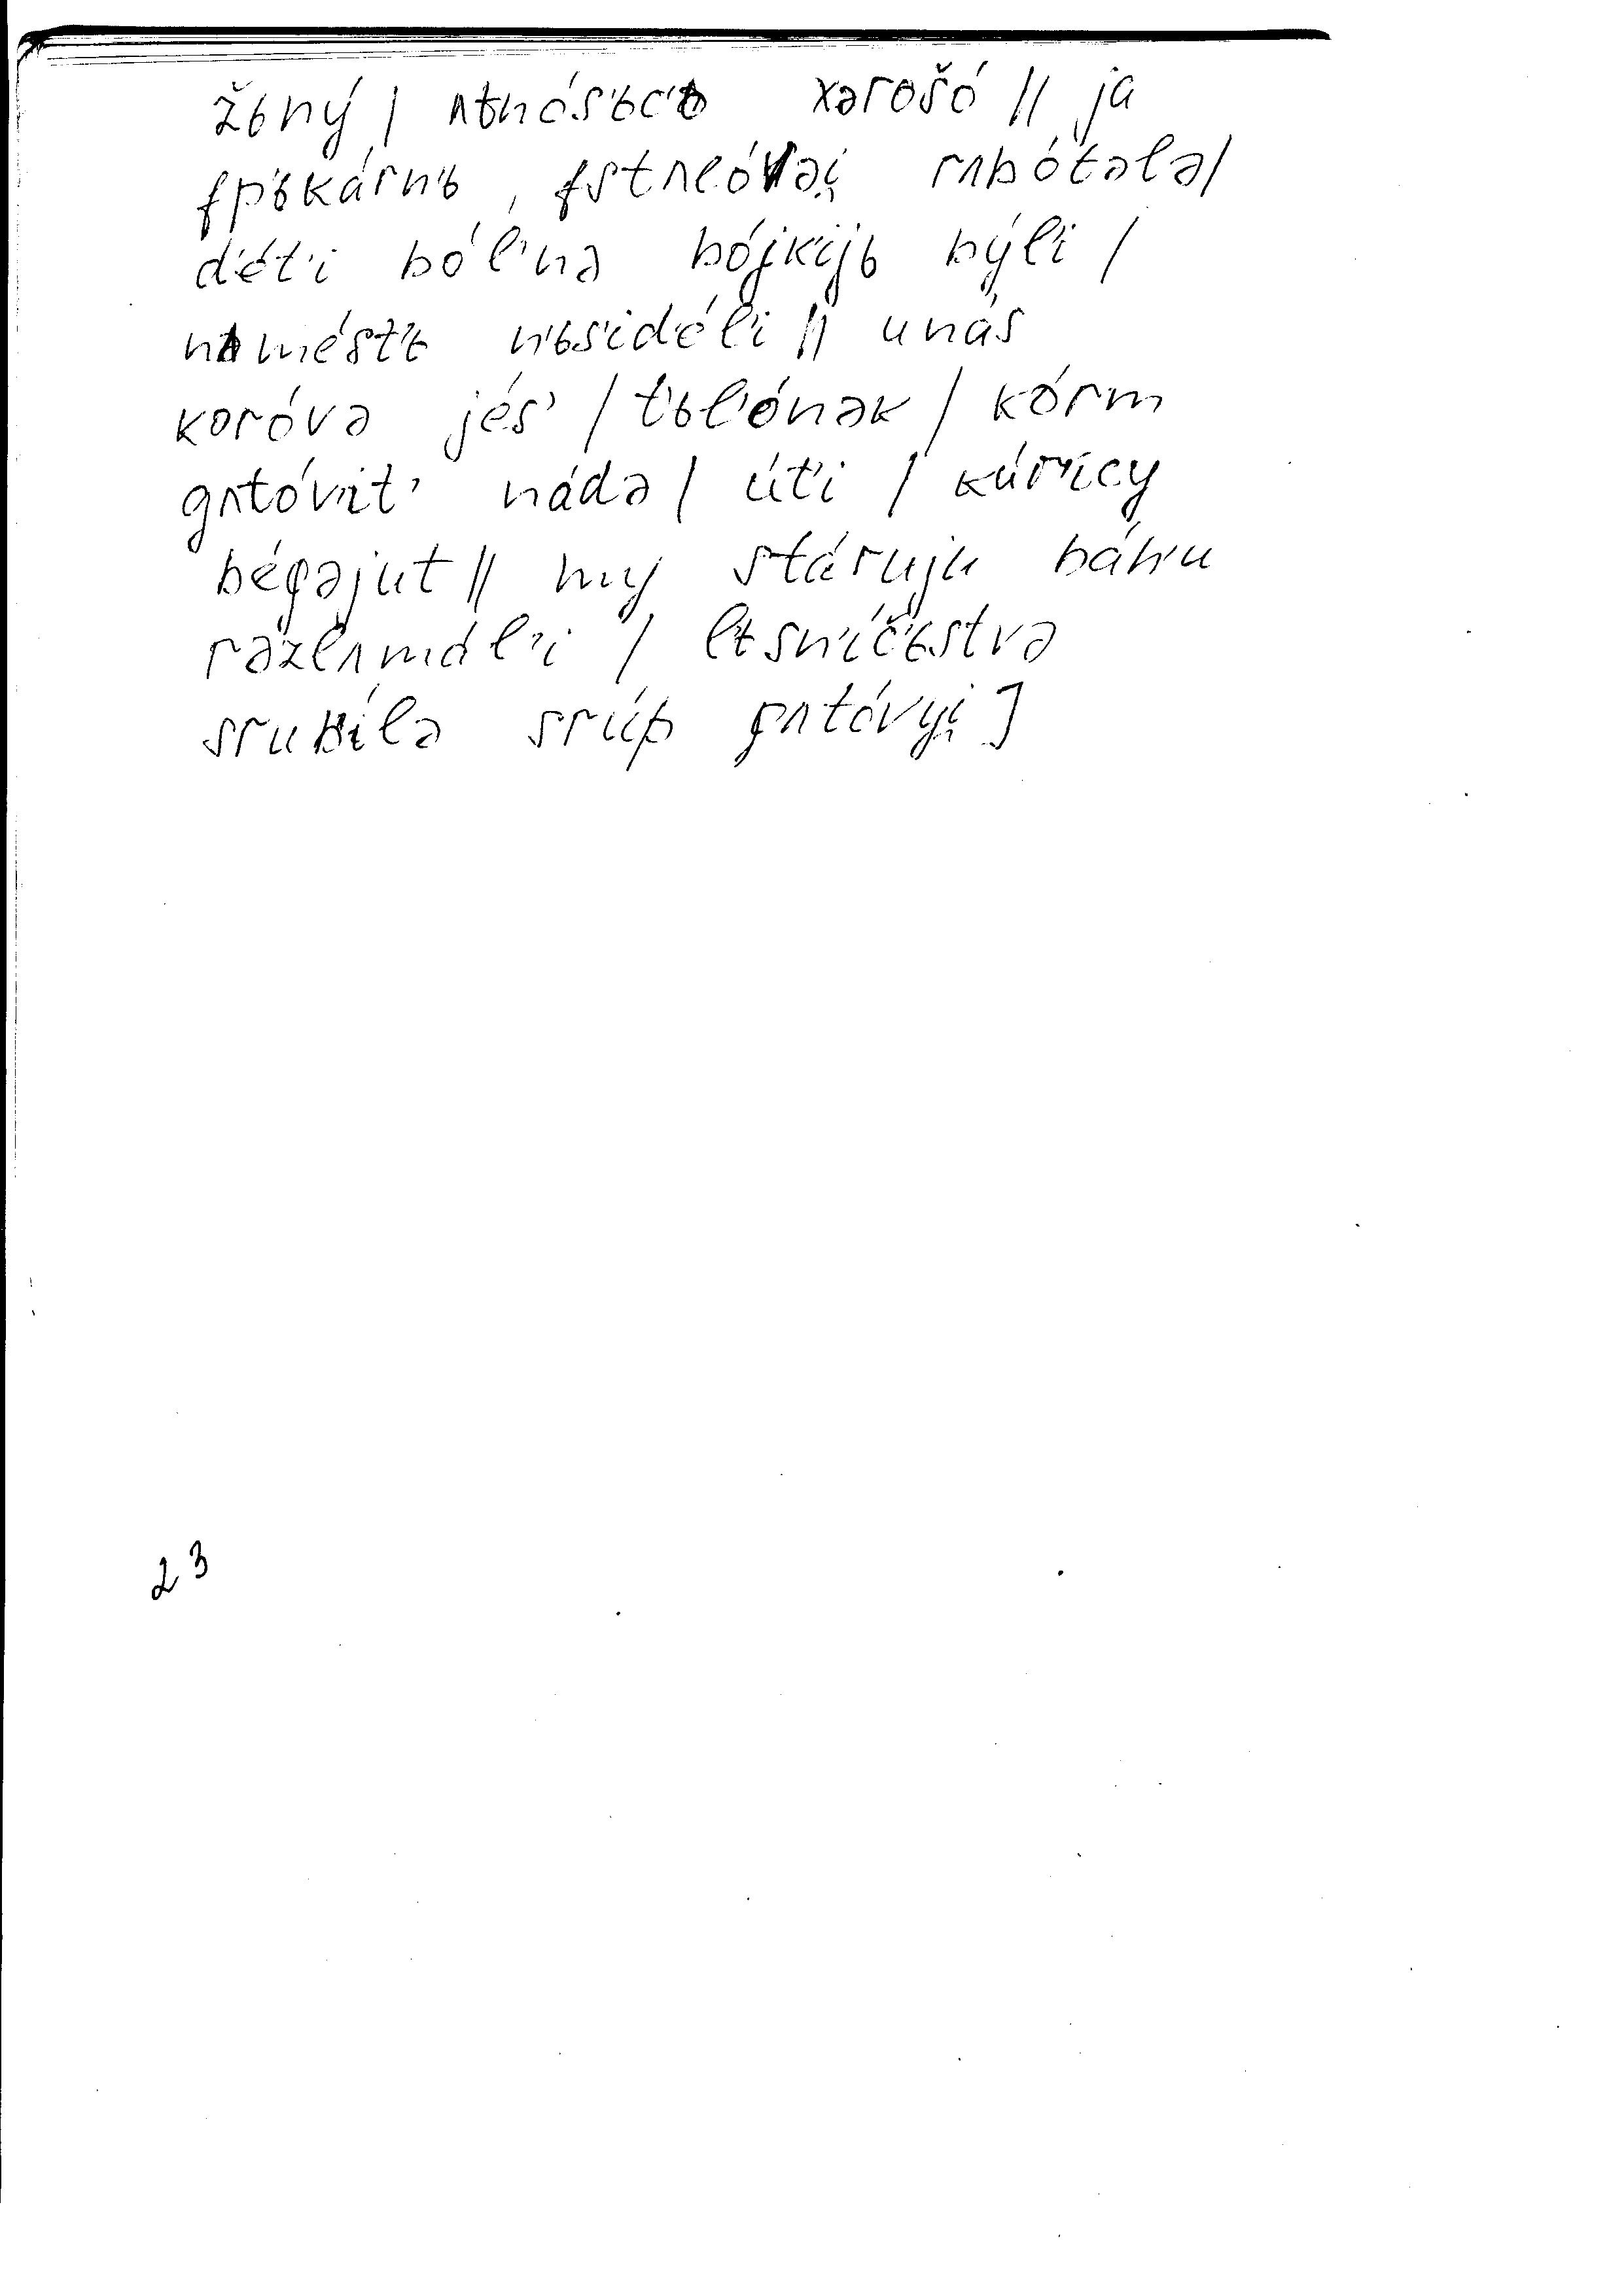 žьný / ʌtnós'ьc'ь xərošó // ja
fp'ьkárn'ь, fstʌlóvəi̯ rʌbótələ /
d'ét'i ból'nə bójk'ijь býl'i /
nʌm'és't'ь n'ьs'id'él'i // unás
koróvə jés' / t'ьl'ónək / kórm
gʌtóv'it' nádə / út'i / kúr'icy
b'égəjut // my stáruju bán'u
rəzlʌmál'i / l'ьsn'íč'ьstvə
srub'ílə srúp gʌtóvyi̯ ]
23